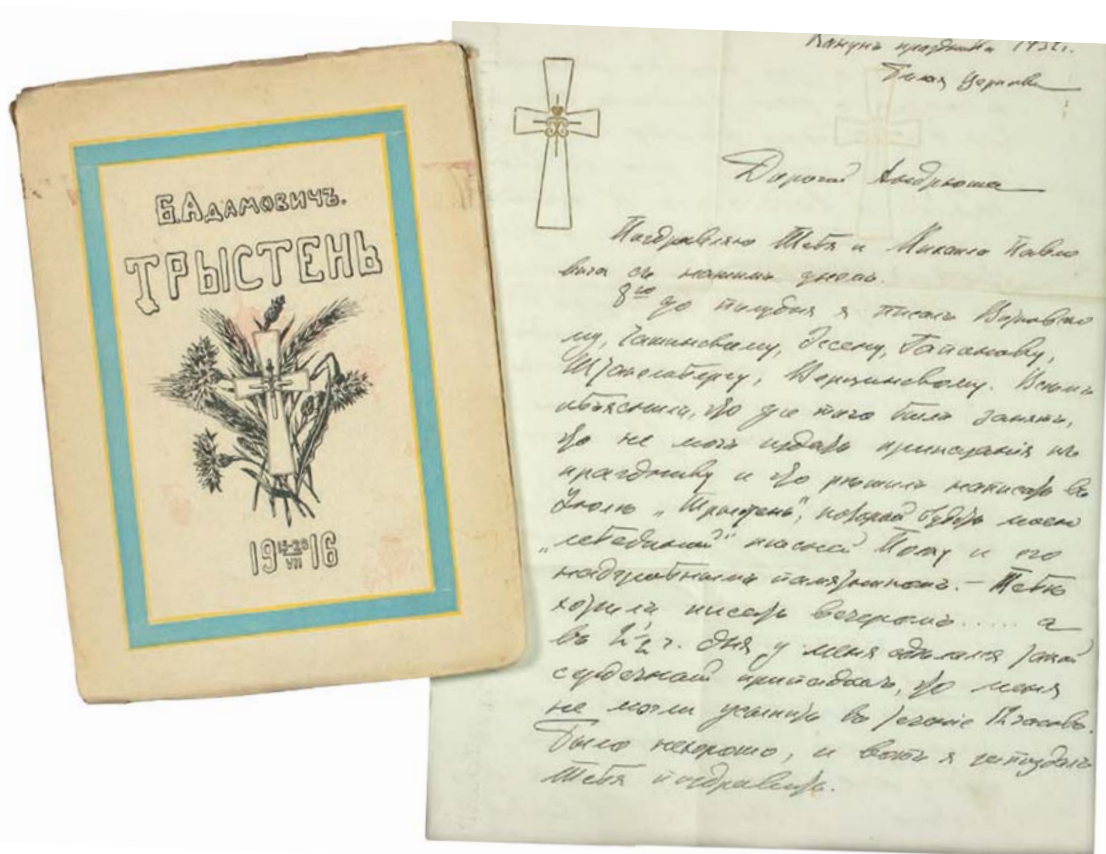 Б. Адамовичъ.
ТРЫСТЕНЬ
19 15-20 VII 16
Канунъ праздника 1932г.
Белая Церковь
Дорогой Андрюша
Поздравляю Тебя и Михаила Павло
вича съ нашимъ днемъ.
8го до полудня я писалъ
му, Эссену,
Всѣмъ
объяснилъ, что до того былъ занятъ,
что не могъ издать приказанія къ
празднику и что рѣшилъ написать въ
Іюлю „Трыстень", который будетъ моею
„лебединой" пѣсней Полку и его
надгробнымъ памятникомъ. – Тебѣ
хотѣлъ писать вечеромъ ..... а
въ 2½ ч. дня у меня сдѣлался такой
сердечный припадокъ, что меня
не могли усыпить въ теченіе 12 часовъ.
Было нехорошо, и вотъ я запоздалъ
Тебя поздравить.